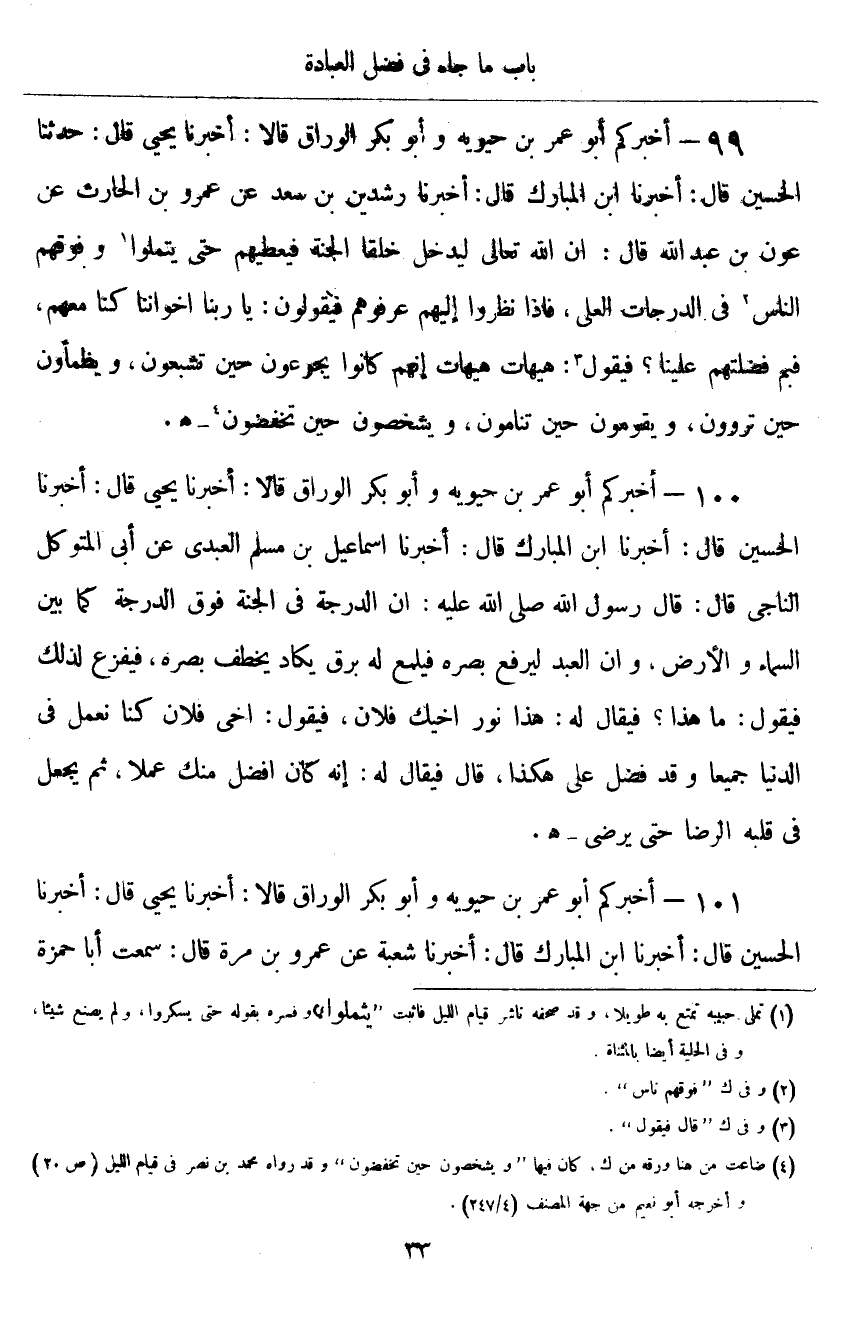 باب ما جاء فى فضل العبادة
٩٩ – أخبركم أبو عمر بن حيويه و أبو بكر الوراق قالا : أخبرنا يحيى قال : حدثنا
الحسين قال : أخبرنا ابن المبارك قال : أخبرنا رشدين بن سعد عن عمرو بن الحارث عن
عون بن عبد الله قال : ان الله تعالى ليدخل خلقا الجنة فيعطيهم حتى يتملوا١ و فوقهم
الناس٢ فى الدرجات العلى ، فاذا نظروا إليهم عرفوهم فيقولون : يا ربنا اخواننا كنا معهم ،
فبم فضلتهم علينا ؟ فيقول٣ : هيهات هيهات إنهم كانوا يجوعون حين تشبعون ، و يظمأون
حين تروون ، و يقومون حين تنامون ، و يشخصون حين تخفضون٤ ـ ه .
١٠٠ – أخبركم أبو عمر بن حيويه و أبو بكر الوراق قالا : أخبرنا يحيى قال : أخبرنا
الحسين قال : أخبرنا ابن المبارك قال : أخبرنا اسماعيل بن مسلم العبدى عن أبى المتوكل
الناجى قال : قال رسول الله صلى الله عليه : ان الدرجة فى الجنة فوق الدرجة كما بين
السماء و الأرض ، و ان العبد ليرفع بصره فيلمع له برق يكاد يخطف بصره ، فيفزع لذلك
فيقول : ما هذا ؟ فيقال له : هذا نور اخيك فلان ، فيقول : اخى فلان كنا نعمل فى
الدنيا جميعا و قد فضل على هكذا ، قال فيقال له : إنه كان افضل منك عملا ، ثم يجعل
فى قلبه الرضا حتى يرضى ـ ه .
١٠١ – أخبركم أبو عمر بن حيويه و أبو بكر الوراق قالا : أخبرنا يحيى قال : أخبرنا
الحسين قال : أخبرنا ابن المبارك قال : أخبرنا شعبة عن عمرو بن مرة قال : سمعت أبا حمزة
(١) تملى حبيبه تمتع به طويلا ، و قد صحفه ناشر قيام الليل فاثبت "يثملوا" و فسره بقوله حتى يسكروا ، ولم يصنع شيئا ،
و فى الحلية أيضا بالمثناة .
(٢) و فى ك "فوقهم ناس" .
(٣) و فى ك "قال فيقول" .
(٤) ضاعت من هنا ورقه من ك ، كان فيها "و يشخصون حين تخفضون" و قد رواه محمد بن نصر فى قيام الليل ( ص ٢٠ )
و أخرجه أبو نعيم من جهة المصنف (٤/٢٤٧) .
٣٣